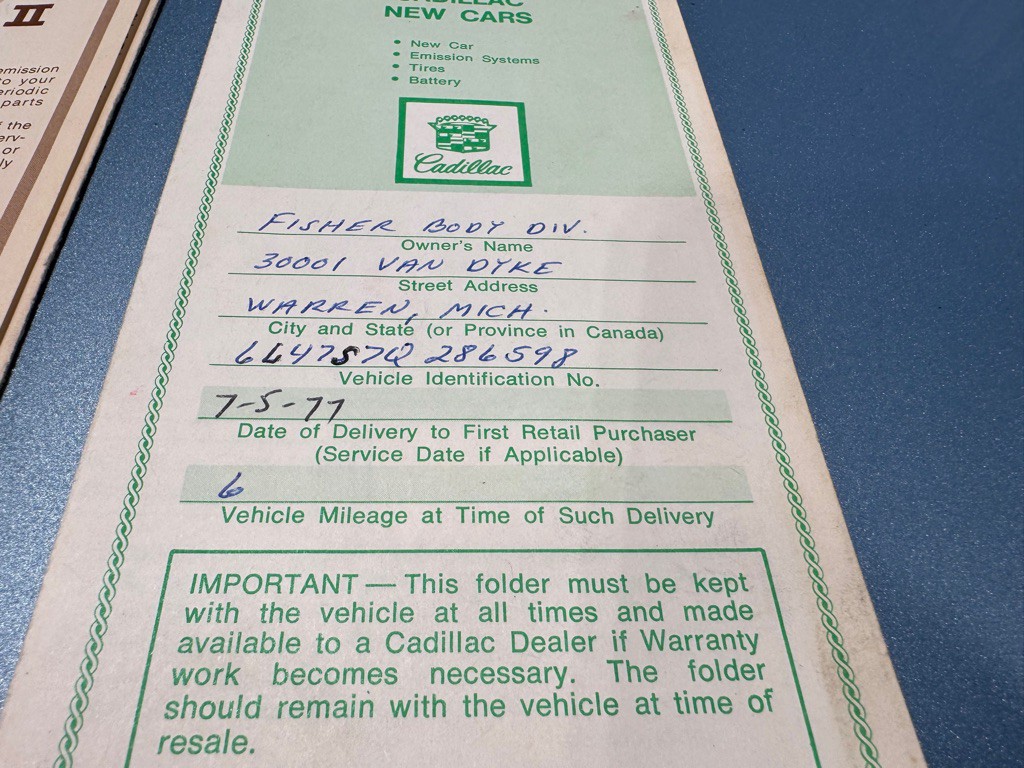 II
emission
to your
eriodic
parts
f the
erv-
or
ly
CADILLAC
NEW CARS
• New Car
• Emission Systems
• Tires
• Battery
Cadillac
FISHER BODY DIV.
Owner's Name
30001 VAN DYKE
Street Address
WARREN, MICH.
City and State (or Province in Canada)
6L47S7Q 286598
Vehicle Identification No.
7-5-77
Date of Delivery to First Retail Purchaser
(Service Date if Applicable)
6
Vehicle Mileage at Time of Such Delivery
IMPORTANT — This folder must be kept
with the vehicle at all times and made
available to a Cadillac Dealer if Warranty
work becomes necessary. The folder
should remain with the vehicle at time of
resale.